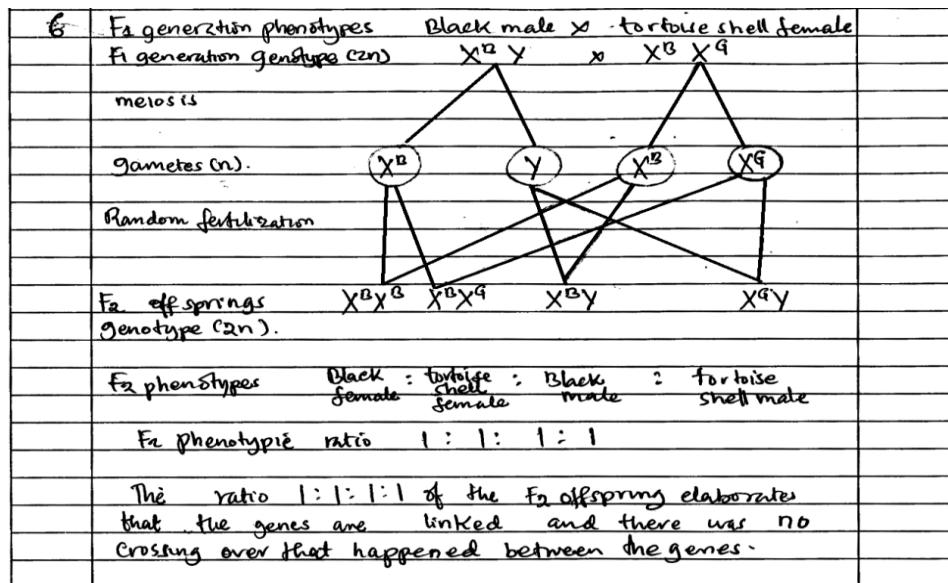 6 F1 generation phenotypes Black male x tortoise shell female
F1 generation genotype (2n) XᴮY x Xᴮ Xᴳ
meiosis
gametes (n). Xᴮ Y Xᴮ Xᴳ
Random fertilization
F2 offsprings XᴮXᴮ XᴮXᴳ XᴮY XᴳY
genotype (2n).
F2 phenotypes Black female : tortoise shell female : Black male : tortoise shell male
F2 phenotypic ratio 1 : 1 : 1 : 1
The ratio 1:1:1:1 of the F2 offspring elaborates
that the genes are linked and there was no
crossing over that happened between the genes.